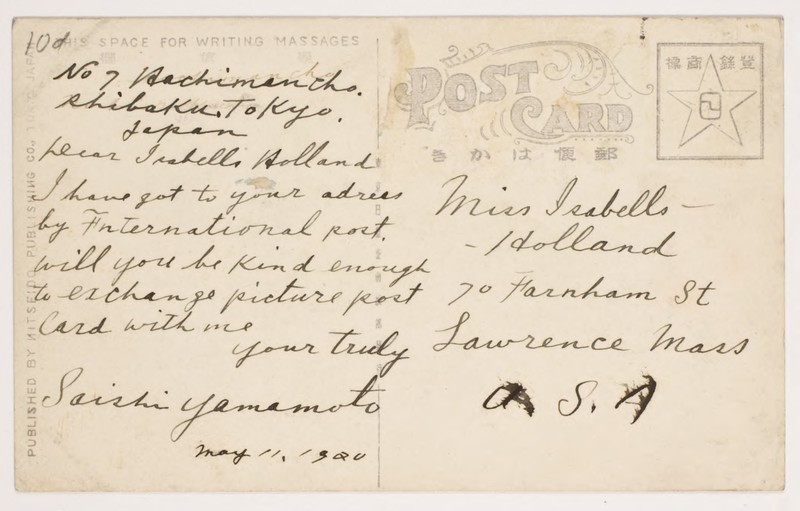 10¢
THIS SPACE FOR WRITING MASSAGES
No 7 Hachiman Cho.
Shibaku. Tokyo.
Japan
Dear Isabells Holland
I have got to your adress
by International post.
will you be kind enough
to exchange picture post
Card with me
your truly
Saishi Yamamoto
may 11. 1920
PUBLISHED BY MITSEIDO PUBLISHING CO. TOKYO JAPAN
POST CARD
きかは便郵
標商録登
Miss Isabells -
- Holland
70 Farnham St
Lawrence Mass
U. S. A